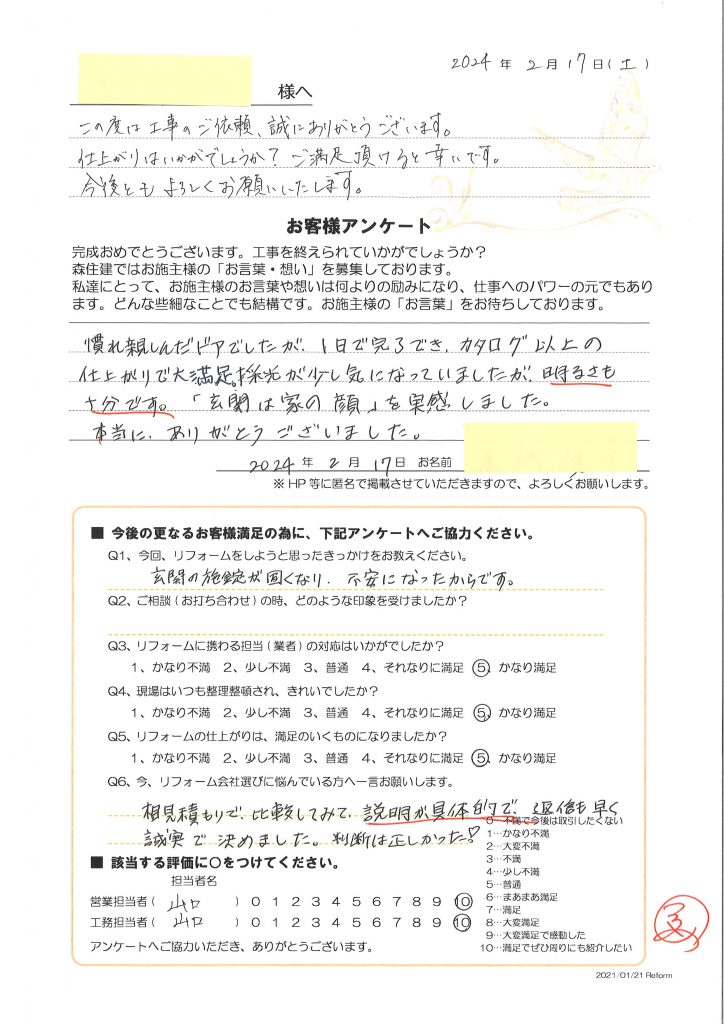 2024年2月17日(土)
様へ
この度は工事のご依頼、誠にありがとうございます。
仕上がりはいかがでしょうか？ご満足頂けると幸いです。
今後ともよろしくお願いいたします。
お客様アンケート
完成おめでとうございます。工事を終えられていかがでしょうか？
森住建ではお施主様の「お言葉・想い」を募集しております。
私達にとって、お施主様のお言葉や想いは何よりの励みになり、仕事へのパワーの元でもあり
ます。どんな些細なことでも結構です。お施主様の「お言葉」をお待ちしております。
慣れ親しんだドアでしたが、1日で完了でき、カタログ以上の
仕上がりで大満足。採光が少し気になっていましたが、明るさも
十分です。「玄関は家の顔」を実感しました。
本当に、ありがとうございました。
2024年2月17日 お名前
※HP等に匿名で掲載させていただきますので、よろしくお願いします。
■ 今後の更なるお客様満足の為に、下記アンケートへご協力ください。
Q1、今回、リフォームをしようと思ったきっかけをお教えください。
玄関の施錠が固くなり、不安になったからです。
Q2、ご相談(お打ち合わせ)の時、どのような印象を受けましたか？
Q3、リフォームに携わる担当(業者)の対応はいかがでしたか？
1、かなり不満 2、少し不満 3、普通 4、それなりに満足 5、かなり満足
Q4、現場はいつも整理整頓され、きれいでしたか？
1、かなり不満 2、少し不満 3、普通 4、それなりに満足 5、かなり満足
Q5、リフォームの仕上がりは、満足のいくものになりましたか？
1、かなり不満 2、少し不満 3、普通 4、それなりに満足 5、かなり満足
Q6、今、リフォーム会社選びに悩んでいる方へ一言お願いします。
相見積もりで、比較してみて、説明が具体的で、返信も早く
誠実で決めました。判断は正しかった!
■ 該当する評価に○をつけてください。
担当者名
営業担当者(山口)0 1 2 3 4 5 6 7 8 9 10
工務担当者(山口)0 1 2 3 4 5 6 7 8 9 10
アンケートへご協力いただき、ありがとうございます。
0…不満で今後は取引したくない
1…かなり不満
2…大変不満
3…不満
4…少し不満
5…普通
6…まあまあ満足
7…満足
8…大変満足
9…大変満足で感動した
10…満足でぜひ周りにも紹介したい
2021/01/21 Reform